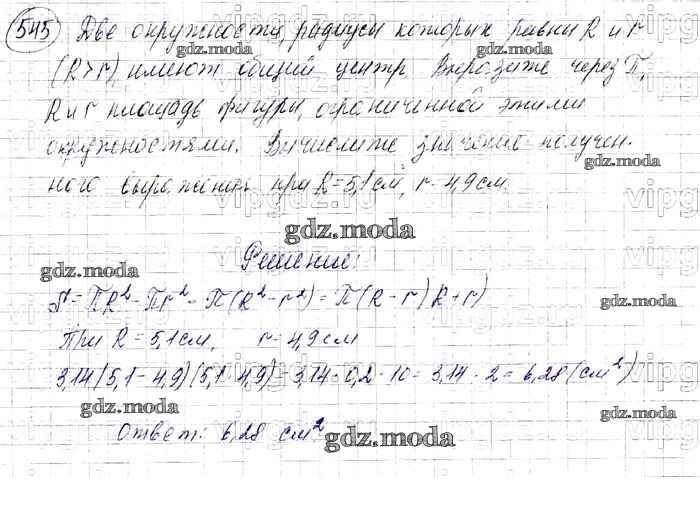 545 Две окружности, радиусы которых равны R и r
(R>r), имеют общий центр. Выразите через π,
R и r площадь фигуры, ограниченной этими
окружностями. Вычислите значение получен-
ного выражения при R=5,1см, r=4,9см.
gdz.moda
Решение:
S = πR² - πr² = π(R² - r²) = π(R - r)(R + r)
При R = 5,1см, r = 4,9см
3,14(5,1-4,9)(5,1+4,9)=3,14·0,2·10=3,14·2=6,28(см²)
Ответ: 6,28 см²
gdz.moda